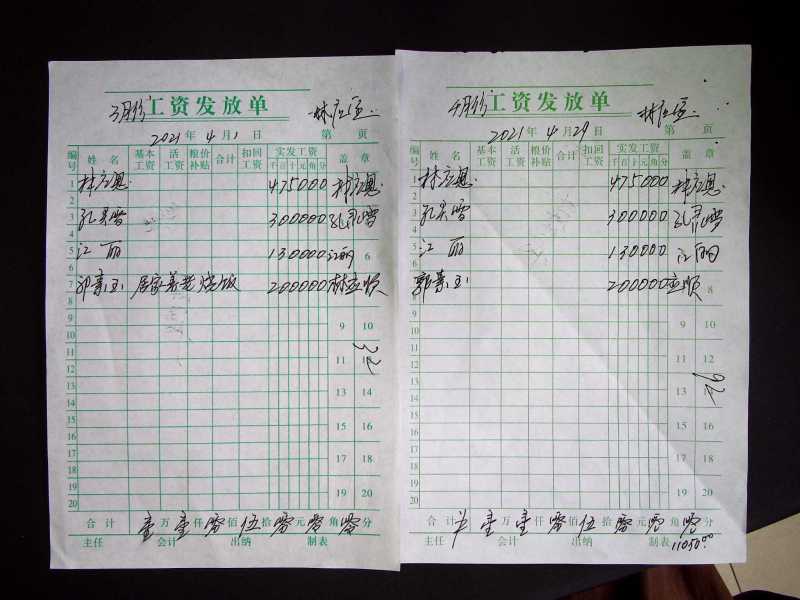 3月份 工资发放单 林应恩
2021年4月1日 第 页
编号 姓名 基本工资 活工资 粮价补贴 合计 扣回工资 实发工资 千百十元角分 盖章
1 林应恩 475000 林应恩
2
3 孔灵雪 300000 孔灵雪
4
5 江丽 130000 江丽 6
6
7 郭素玉 居家养老烧饭 200000 林应顺
8
9 9 10
10
11 11
12
13 13 14
14
15 15 16
16
17 17 18
18
19 19 20
20
合计 壹万壹仟零佰伍拾零元零角零分
主任 会计 出纳 制表
4月份 工资发放单
2021年4月29日 第 页
编号 姓名 基本工资 活工资 粮价补贴 合计 扣回工资 实发工资 千百十元角分 盖章
1 林应恩 475000 林应恩
2
3 孔灵雪 300000 孔灵雪
4
5 江丽 130000 江丽
6
7 郭素玉 200000 应顺 8
8
9 9 10
10
11 11 12
12
13 13
14
15 15 16
16
17 17 18
18
19 19 20
20
合计 壹万壹仟零佰伍拾零元零角零分
主任 会计 出纳 制表 11050.00